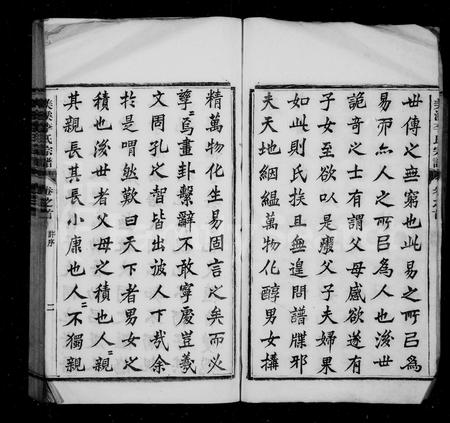 世傳之無窮也此易之所㠯爲
易而亦人之所㠯爲人也後世
詭奇之士有謂父母感欲遂有
子女子女亦以是瀆父子夫婦果
如此則氏族且無遑問譜牒邪
夫天地絪縕萬物化醇男女搆
精萬物化生易固言之矣而必
孽爲畫卦繫辭不敢寧處豈羲
文周孔之智皆出彼人下哉余
於是喟然歎曰天下者男女之
積也後世者父母之積也人親
其親長其長小康也人人不獨親
美溪李氏宗譜
卷之首
許序
二